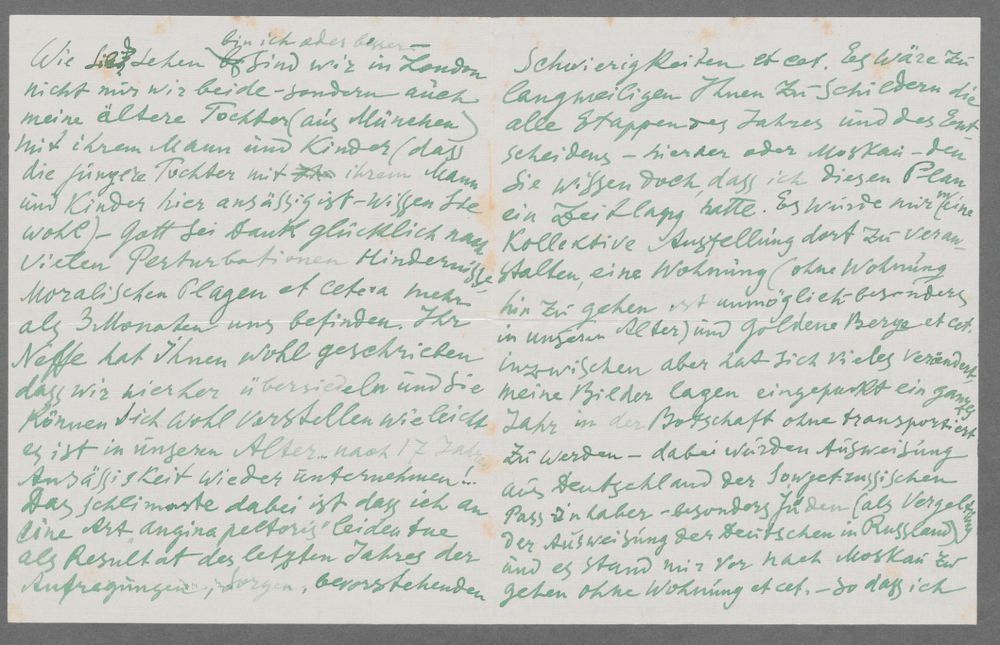 bin ich oder besser –
Wie Sie sehen sind wir in London
nicht nur wir beide – sondern auch
meine ältere Tochter (aus München)
mit ihrem Mann und Kinder (dass
die jüngere Tochter mit ihrem Mann
und Kinder hier ansässig ist – wissen Sie
wohl) – Gott sei Dank glücklich nach
vielen Perturbationen Hindernisse
Moralischen Plagen et cetera mehr
als 3 Monaten uns befinden. Ihr
Neffe hat Ihnen wohl geschrieben
dass wir hierher übersiedeln und Sie
können sich wohl vorstellen wie leicht
es ist in unseren Alter.. nach 17 Jahr
Ansässigkeit wieder unternehmen!..
Das schlimmste dabei ist dass ich an
eine Art „angina pectoris" leiden tue
als Resultat des letzten Jahres der
Aufregungen, Sorgen, bevorstehenden
Schwierigkeiten et cet. Es wäre zu
langweiligen Ihnen zu schildern die
alle Etappen des Jahres und des Ent
scheidens – hierher oder Moskau – den
Sie wissen doch, dass ich diesen Plan
ein Zeitlang hatte. Es wurde mir meine
Kollektive Austellung dort zu veran-
stalten, eine Wohnung (ohne Wohnung
hin zu gehen ist unmöglich – besonders
in unseren Alter) und Goldene Berge et cet.
inzwischen aber hat sich vieles verändert,
meine Bilder lagen eingepackt ein ganzes
Jahr in der Botschaft ohne transportiert
zu werden – dabei wurden Ausweisung
aus Deutschland der Sowjetrussischen
Pass Inhaber – besonders Juden (als Vergeltung
der Ausweisung der Deutschen in Russland)
und es stand mir vor nach Moskau zu
gehen ohne Wohnung et cet. – so dass ich